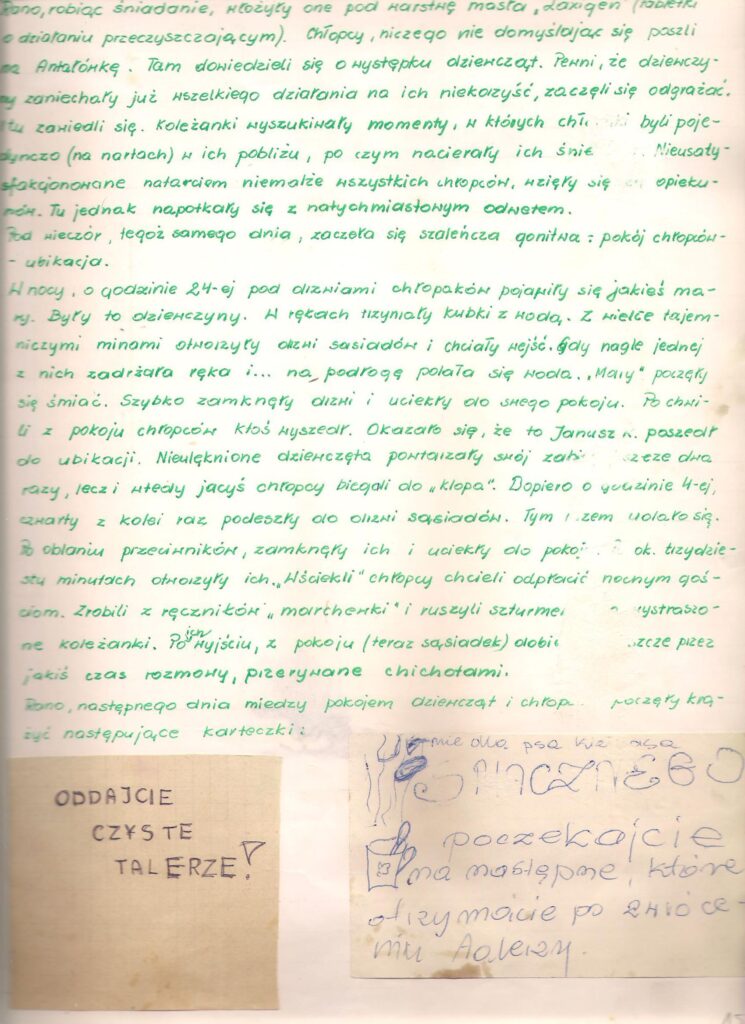 Rano, robiąc śniadanie, włożyły one pod warstwę masła „Laxigen" (tabletki
o działaniu przeczyszczającym). Chłopcy, niczego nie domyślając się poszli
na Antałówkę. Tam dowiedzieli się o występku dziewcząt. Pewni, że dziewczy-
ny zaniechały już wszelkiego działania na ich niekorzyść, zaczęli się odgrażać.
i tu zawiedli się. Koleżanki wyszukiwały momenty, w których byli poje-
dynczo (na nartach) w ich pobliżu, po czym nacierały ich śnie Nieusaty-
sfakcjonowane natarciem niemalże wszystkich chłopców, wzięły się opieku-
nów. Tu jednak napotkały się z natychmiastowym odwetem.
Pod wieczór, tegoż samego dnia, zaczęła się szaleńcza gonitwa: pokój chłopców-
- ubikacja.
W nocy, o godzinie 24-ej pod drzwiami chłopaków pojawiły się jakieś ma-
ry. Były to dziewczyny. W rękach trzymały kubki z wodą. Z wielce tajem-
niczymi minami otworzyły drzwi sąsiadów i chciały wejść. Gdy nagle jednej
z nich zadrżała ręka i... na podłogę polała się woda. „Mary" poczęły
się śmiać. Szybko zamknęły drzwi i uciekły do swego pokoju. Po chwi-
li z pokoju chłopców ktoś wyszedł. Okazało się, że to Janusz K. poszedł
do ubikacji. Nieulęknione dziewczęta powtarzały swój zab dwa
razy, lecz i wtedy jacyś chłopcy biegali do „klopa". Dopiero o godzinie 4-ej,
czwarty z kolei raz podeszły do drzwi sąsiadów. Tym razem udało się.
Po oblaniu przeciwników, zamknęły ich i uciekły do poko ok. trzydzie-
stu minutach otworzyły ich. „Wściekli" chłopcy chcieli odpłacić nocnym goś-
ciom. Zrobili z ręczników „marchewki" i ruszyli szturmem wystraszo-
ne koleżanki. Po ich wyjściu, z pokoju (teraz sąsiadek) dobie szcze przez
jakiś czas rozmowy, przerywane chichotami.
Rano, następnego dnia między pokojem dziewcząt i chłop poczęły krą-
żyć następujące karteczki:
ODDAJCIE
CZYSTE
TALERZE!
dla psa
SMACZNEGO
poczekajcie
na następne, które
otrzymacie po zwróce-
niu talerzy.